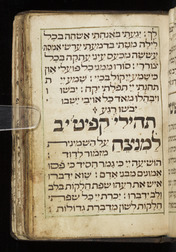 לך: יגעתי באנחתי אשחה בכל
לילה מטתי בדמעתי ערשי אמסה
עששה מכעס עיני עתקה בכל
צוררי: סורו ממני כל פועלי און
כי שמע יי קול בכיי: שמע יי
תחנתי יי תפלתי יקח: יבשו
ויבהלו מאד כל אויבי ישבו
יבשו רגע:
תהילי קפיט׳ יב
למנצח על השמינית
מזמור לדוד
הושיעה יי כי גמר חסיד כי פסו
אמונים מבני אדם: שוא ידברו
איש את רעהו שפת חלקות בלב
ולב ידברו: יכרת יי כל שפתי
חלקות לשון מדברת גדולות: